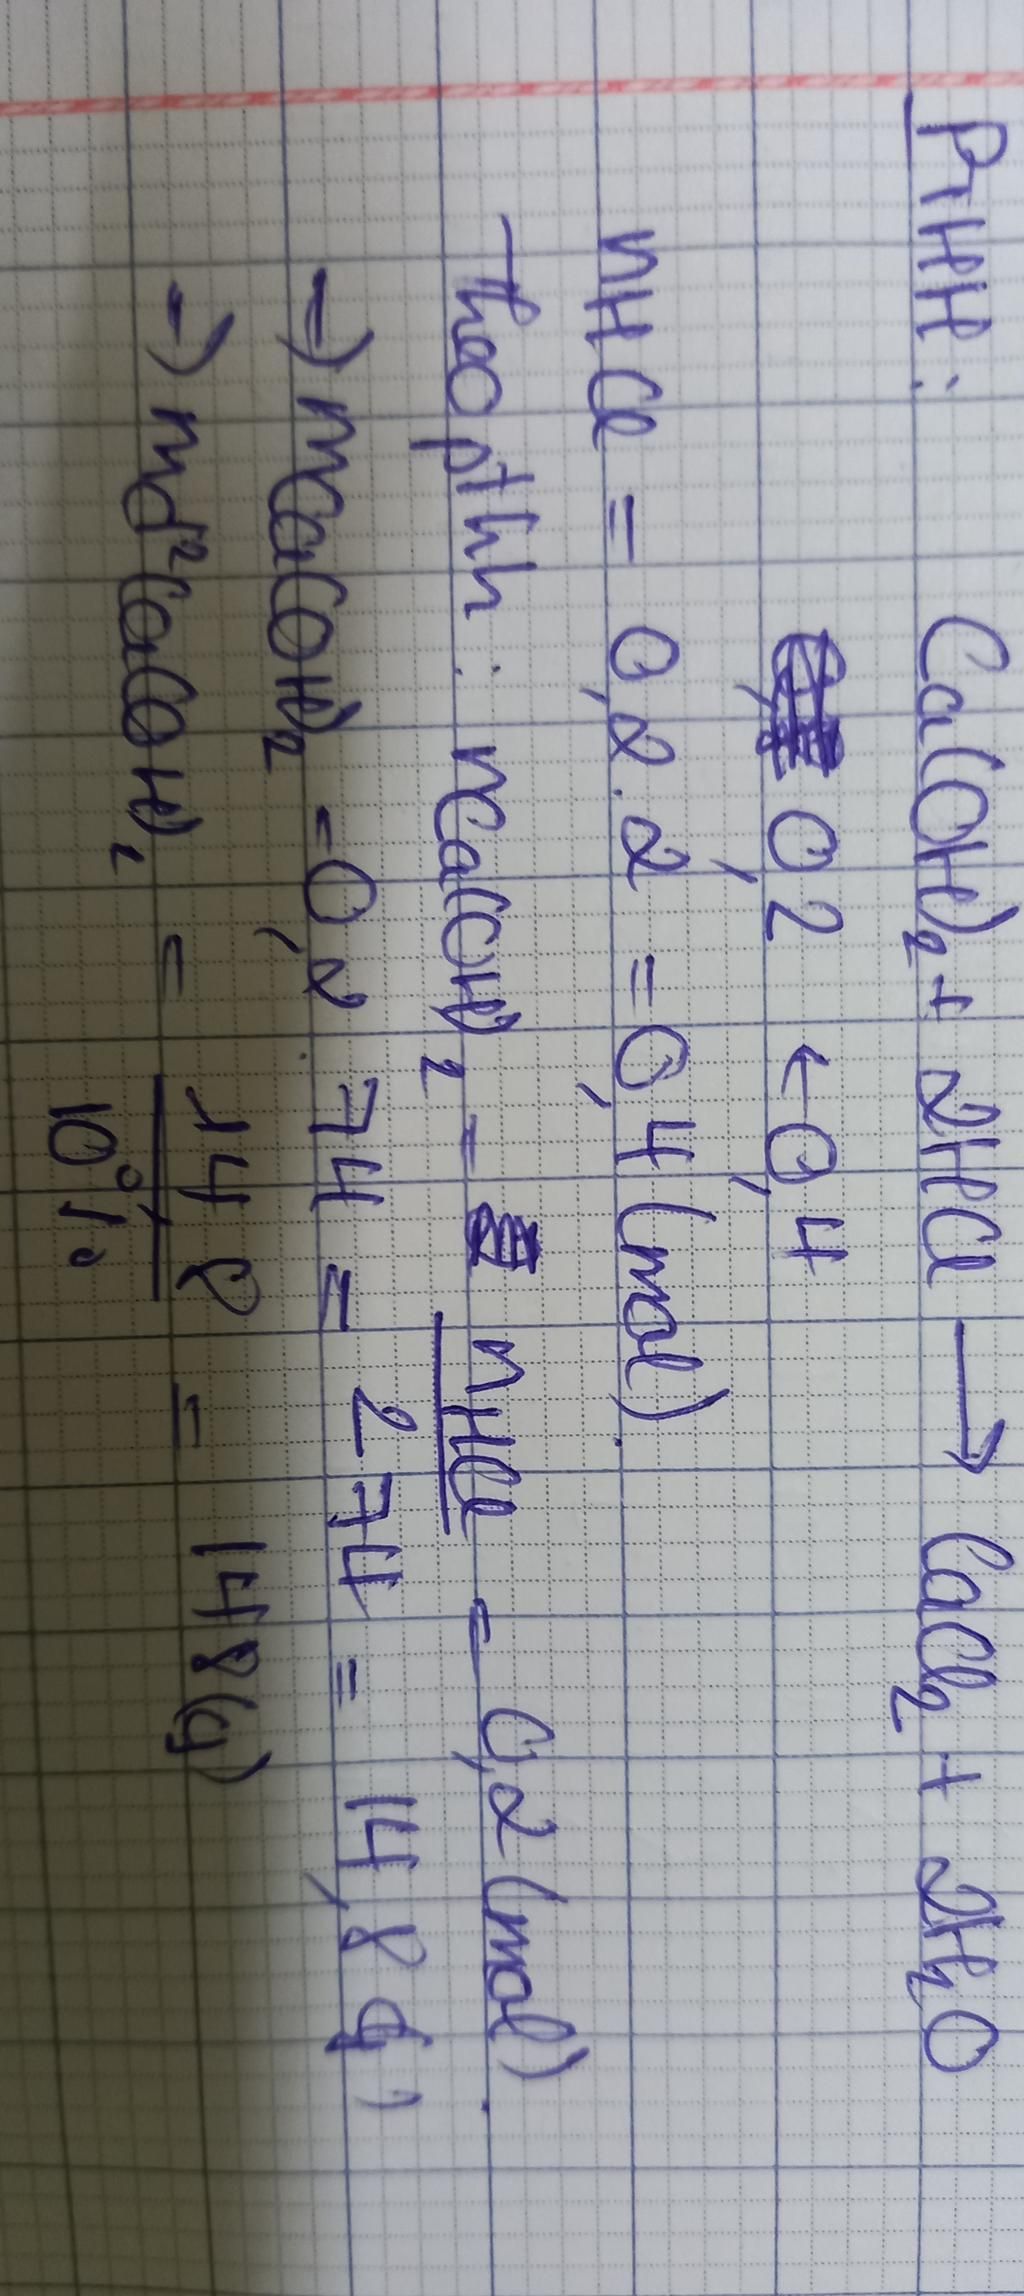 PTHH: Ca(OH)2 + 2HCl → CaCl2 + 2H2O
0,2 ← 0,4
nHCl = 0,2.2 = 0,4 (mol).
Theo pthh: nCa(OH)2 = nHCl = 0,2 (mol).
→) mCa(OH)2 = 0,2.74 = 274 = 14,8 g)
→) md2Ca(OH)2 = 148 / 10% = 148(g)